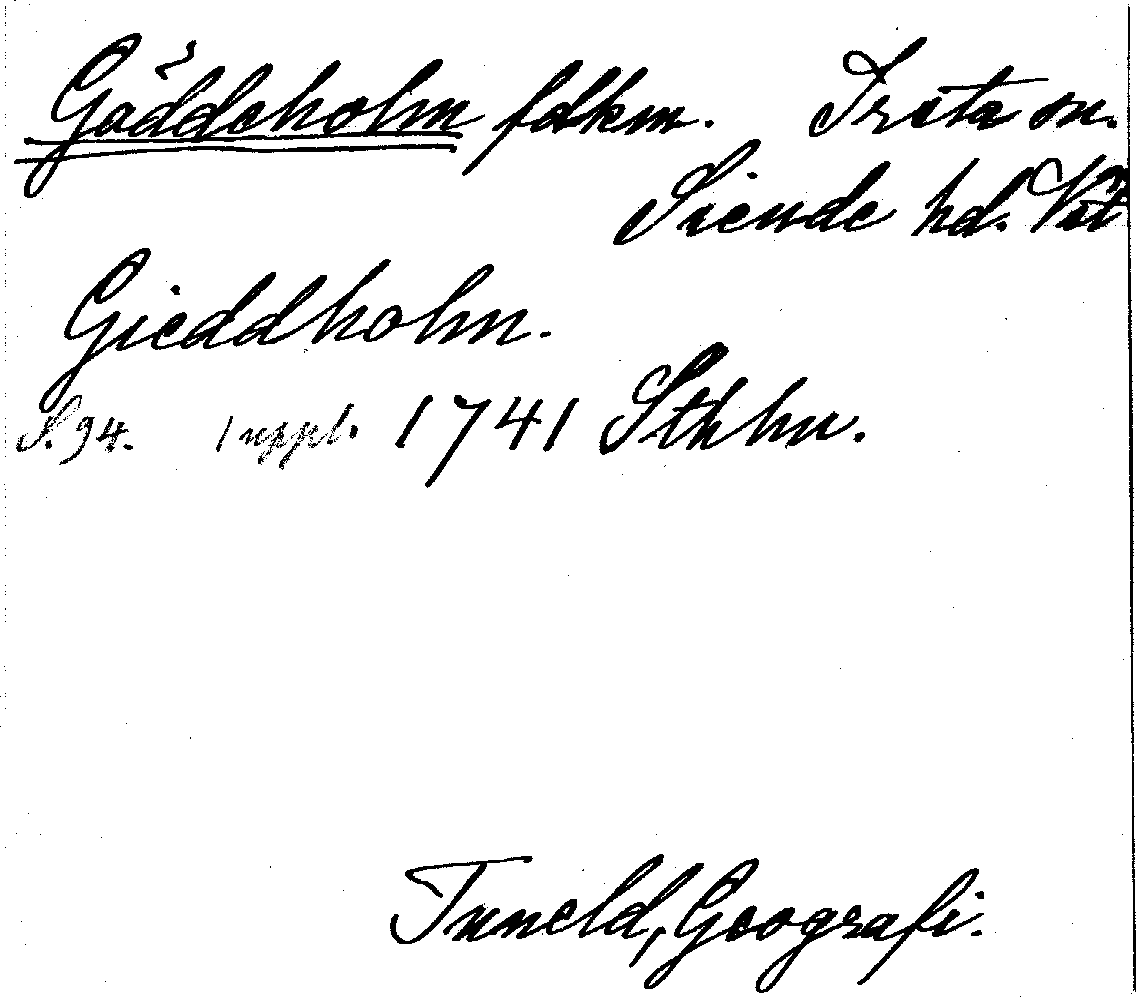 Gäddeholm fdkm. Irsta sn.
Siende hd. Vstl
Gieddholm.
S. 94. 1 uppl. 1741 Sthlm.
Tuneld, Geografi.